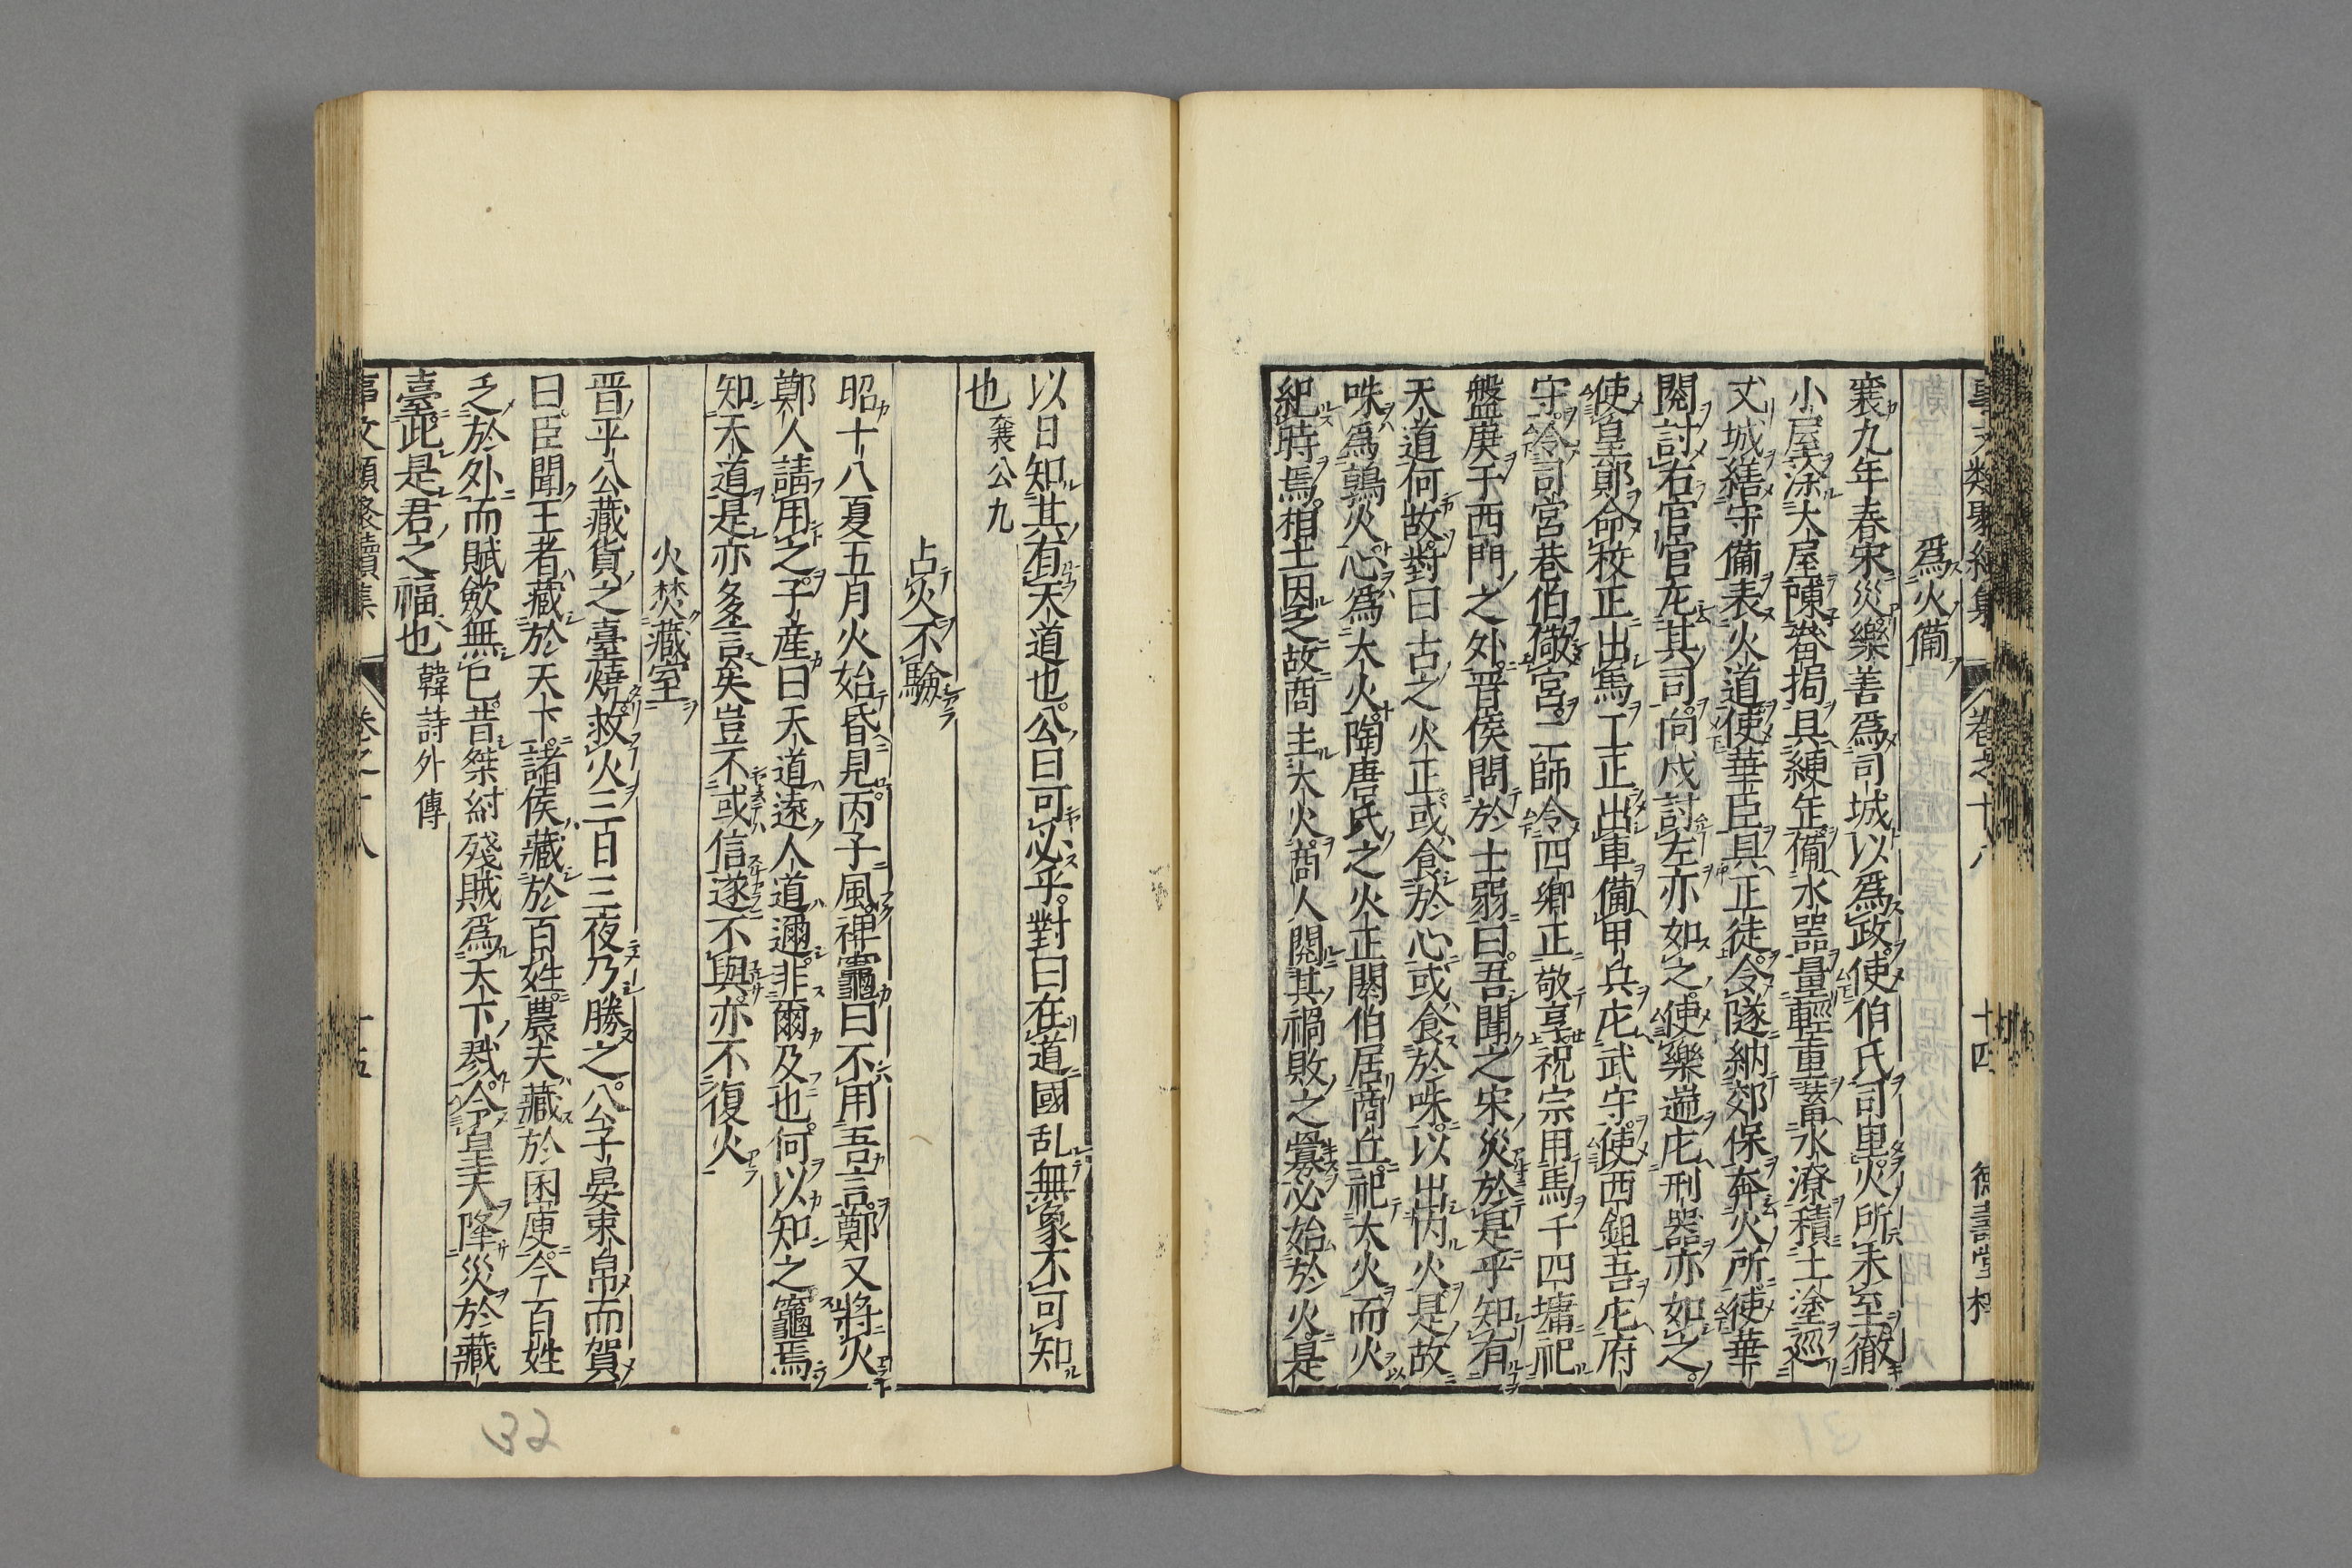 事文類聚續集 卷之十八 十四 德壽堂梓
爲火備
襄九年春宋災樂善爲司城以爲政使伯氏司里火所未至徹
小屋涂大屋陳畚挶具綆缶備水器量輕重蓄水潦積土塗廵
丈城繕守備表火道使華臣具正徒令隧納郊保奔火所使華
閱討右官官庀其司向戍討左亦如之使樂遄庀刑器亦如之
使皇鄖命校正出馬工正出車備甲兵庀武守使西鉏吾庀府
守令司宮巷伯儆宮二師令四卿正敬享祝宗用馬千四墉祀
盤庚于西門之外晋侯問於士弱曰吾聞之宋災於是乎知有
天道何故對曰古之火正或食於心或食於咮以出內火是故
咮爲鶉火心爲大火陶唐氏之火正閼伯居商丘祀大火而火
紀時焉相土因之故商主大火商人閱其禍敗之釁必始於火是
以日知其有天道也公曰可必乎對曰在道國乱無象不可知
也 襄公九
占火不驗
昭十八夏五月火始昏見丙子風裨竈曰不用吾言鄭又將火
鄭人請用之子産曰天道遠人道邇非爾及也何以知之竈焉
知天道是亦多言矣豈不或信遂不與亦不復火
火焚藏室
晋平公藏貨之臺燒救火三日三夜乃勝之公子晏束帛而賀
曰臣聞王者藏於天下諸侯藏於百姓農夫藏於囷庾今百姓
乏於外而賦斂無已昔桀紂殘賊爲天下戮今皇天降災於藏
臺此是君之福也 韓詩外傳
事文類聚續集 卷之十八 十五